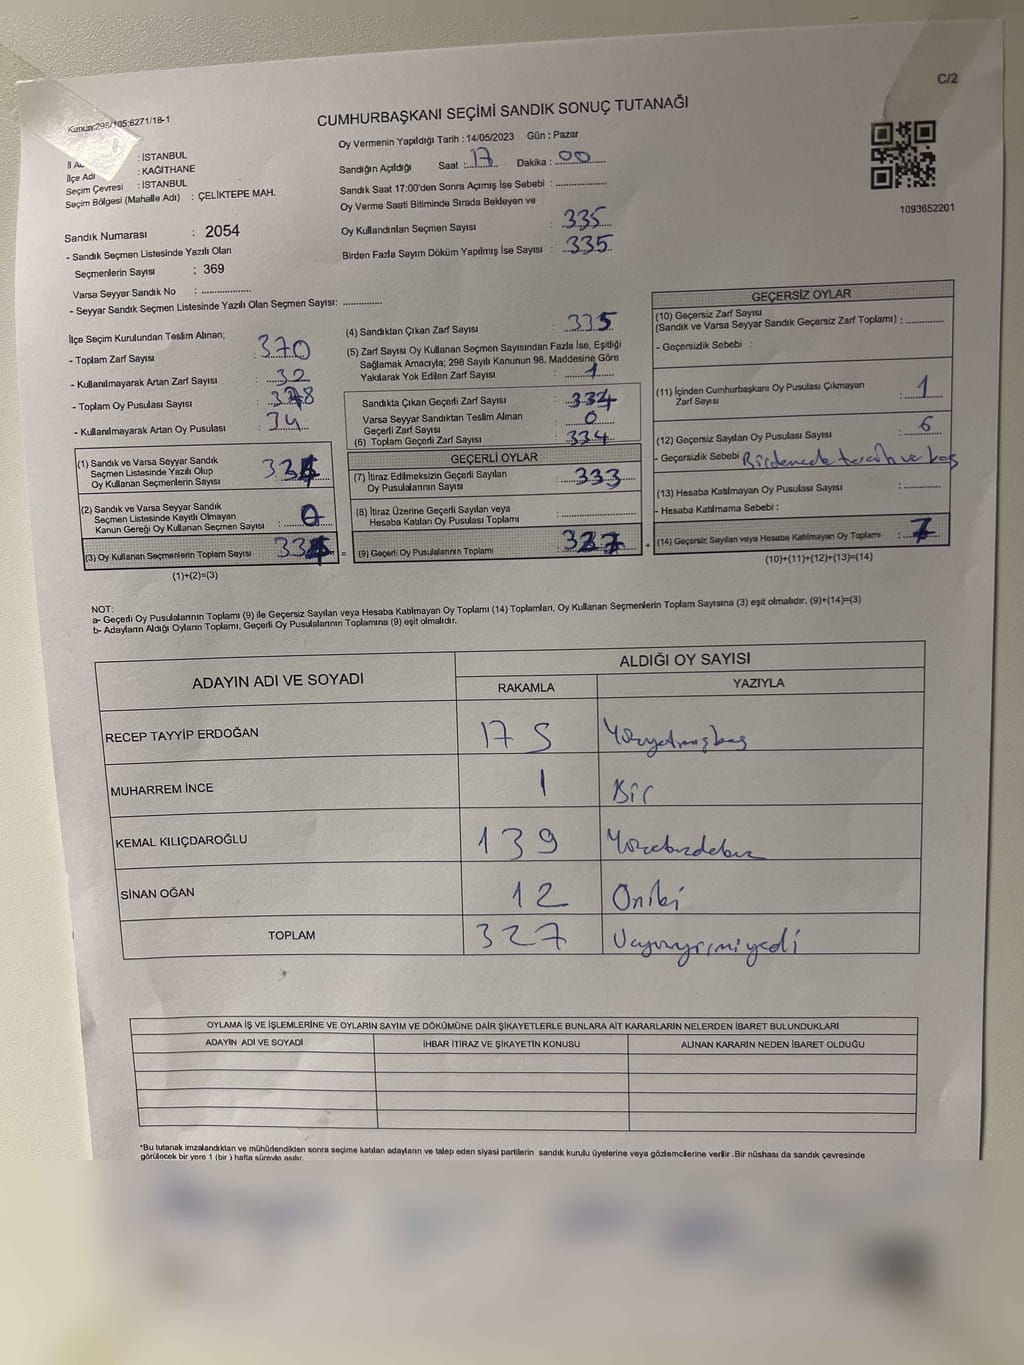 C/2
Kanun:298/105;6271/18-1
CUMHURBAŞKANI SEÇİMİ SANDIK SONUÇ TUTANAĞI
Oy Vermenin Yapıldığı Tarih : 14/05/2023 Gün : Pazar
İlçe Adı : İSTANBUL
: KAĞITHANE
Seçim Çevresi : İSTANBUL
Seçim Bölgesi (Mahalle Adı) : ÇELİKTEPE MAH.
Sandığın Açıldığı Saat : 17 Dakika : 00
Sandık Saat 17:00'den Sonra Açımış İse Sebebi :
Oy Verme Saati Bitiminde Sırada Bekleyen ve
Oy Kullandırılan Seçmen Sayısı : 335
Birden Fazla Sayım Döküm Yapılmış İse Sayısı : 335
1093652201
Sandık Numarası : 2054
- Sandık Seçmen Listesinde Yazılı Olan
Seçmenlerin Sayısı : 369
Varsa Seyyar Sandık No :
- Seyyar Sandık Seçmen Listesinde Yazılı Olan Seçmen Sayısı:
İlçe Seçim Kurulundan Teslim Alınan;
- Toplam Zarf Sayısı : 370
- Kullanılmayarak Artan Zarf Sayısı : 32
- Toplam Oy Pusulası Sayısı :
- Kullanılmayarak Artan Oy Pusulası : 34
(1) Sandık ve Varsa Seyyar Sandık
Seçmen Listesinde Yazılı Olup
Oy Kullanan Seçmenlerin Sayısı :
(2) Sandık ve Varsa Seyyar Sandık
Seçmen Listesinde Kayıtlı Olmayan
Kanun Gereği Oy Kullanan Seçmen Sayısı : 0
(3) Oy Kullanan Seçmenlerin Toplam Sayısı : =
(1)+(2)=(3)
(4) Sandıktan Çıkan Zarf Sayısı : 335
(5) Zarf Sayısı Oy Kullanan Seçmen Sayısından Fazla İse, Eşitliği
Sağlamak Amacıyla; 298 Sayılı Kanunun 98. Maddesine Göre
Yakılarak Yok Edilen Zarf Sayısı : 1
Sandıkta Çıkan Geçerli Zarf Sayısı : 334
Varsa Seyyar Sandıktan Teslim Alınan
Geçerli Zarf Sayısı : 0
(6) Toplam Geçerli Zarf Sayısı : 334
GEÇERLİ OYLAR
(7) İtiraz Edilmeksizin Geçerli Sayılan
Oy Pusulalarının Sayısı : 333
(8) İtiraz Üzerine Geçerli Sayılan veya
Hesaba Katılan Oy Pusulası Toplamı :
(9) Geçerli Oy Pusulalarının Toplamı : 327 +
GEÇERSİZ OYLAR
(10) Geçersiz Zarf Sayısı
(Sandık ve Varsa Seyyar Sandık Geçersiz Zarf Toplamı) :
- Geçersizlik Sebebi :
(11) İçinden Cumhurbaşkanı Oy Pusulası Çıkmayan
Zarf Sayısı : 1
(12) Geçersiz Sayılan Oy Pusulası Sayısı : 6
- Geçersizlik Sebebi
(13) Hesaba Katılmayan Oy Pusulası Sayısı :
- Hesaba Katılmama Sebebi :
(14) Geçersiz Sayılan veya Hesaba Katılmayan Oy Toplamı : 7
(10)+(11)+(12)+(13)=(14)
NOT:
a- Geçerli Oy Pusulalarının Toplamı (9) ile Geçersiz Sayılan veya Hesaba Katılmayan Oy Toplamı (14) Toplamları, Oy Kullanan Seçmenlerin Toplam Sayısına (3) eşit olmalıdır. (9)+(14)=(3)
b- Adayların Aldığı Oyların Toplamı, Geçerli Oy Pusulalarının Toplamına (9) eşit olmalıdır.
ADAYIN ADI VE SOYADI ALDIĞI OY SAYISI
RAKAMLA YAZIYLA
RECEP TAYYİP ERDOĞAN 175 Yüzyetmişbeş
MUHARREM İNCE 1 Bir
KEMAL KILIÇDAROĞLU 139
SİNAN OĞAN 12 Oniki
TOPLAM 327 Üçyüzyirmiyedi
OYLAMA İŞ VE İŞLEMLERİNE VE OYLARIN SAYIM VE DÖKÜMÜNE DAİR ŞİKAYETLERLE BUNLARA AİT KARARLARIN NELERDEN İBARET BULUNDUKLARI
ADAYIN ADI VE SOYADI İHBAR İTİRAZ VE ŞİKAYETİN KONUSU ALINAN KARARIN NEDEN İBARET OLDUĞU
*Bu tutanak imzalandıktan ve mühürlendikten sonra seçime katılan adayların ve talep eden siyasi partilerin sandık kurulu üyelerine veya gözlemcilerine verilir .Bir nüshası da sandık çevresinde
görülecek bir yere 1 (bir ) hafta süreyle asılır.